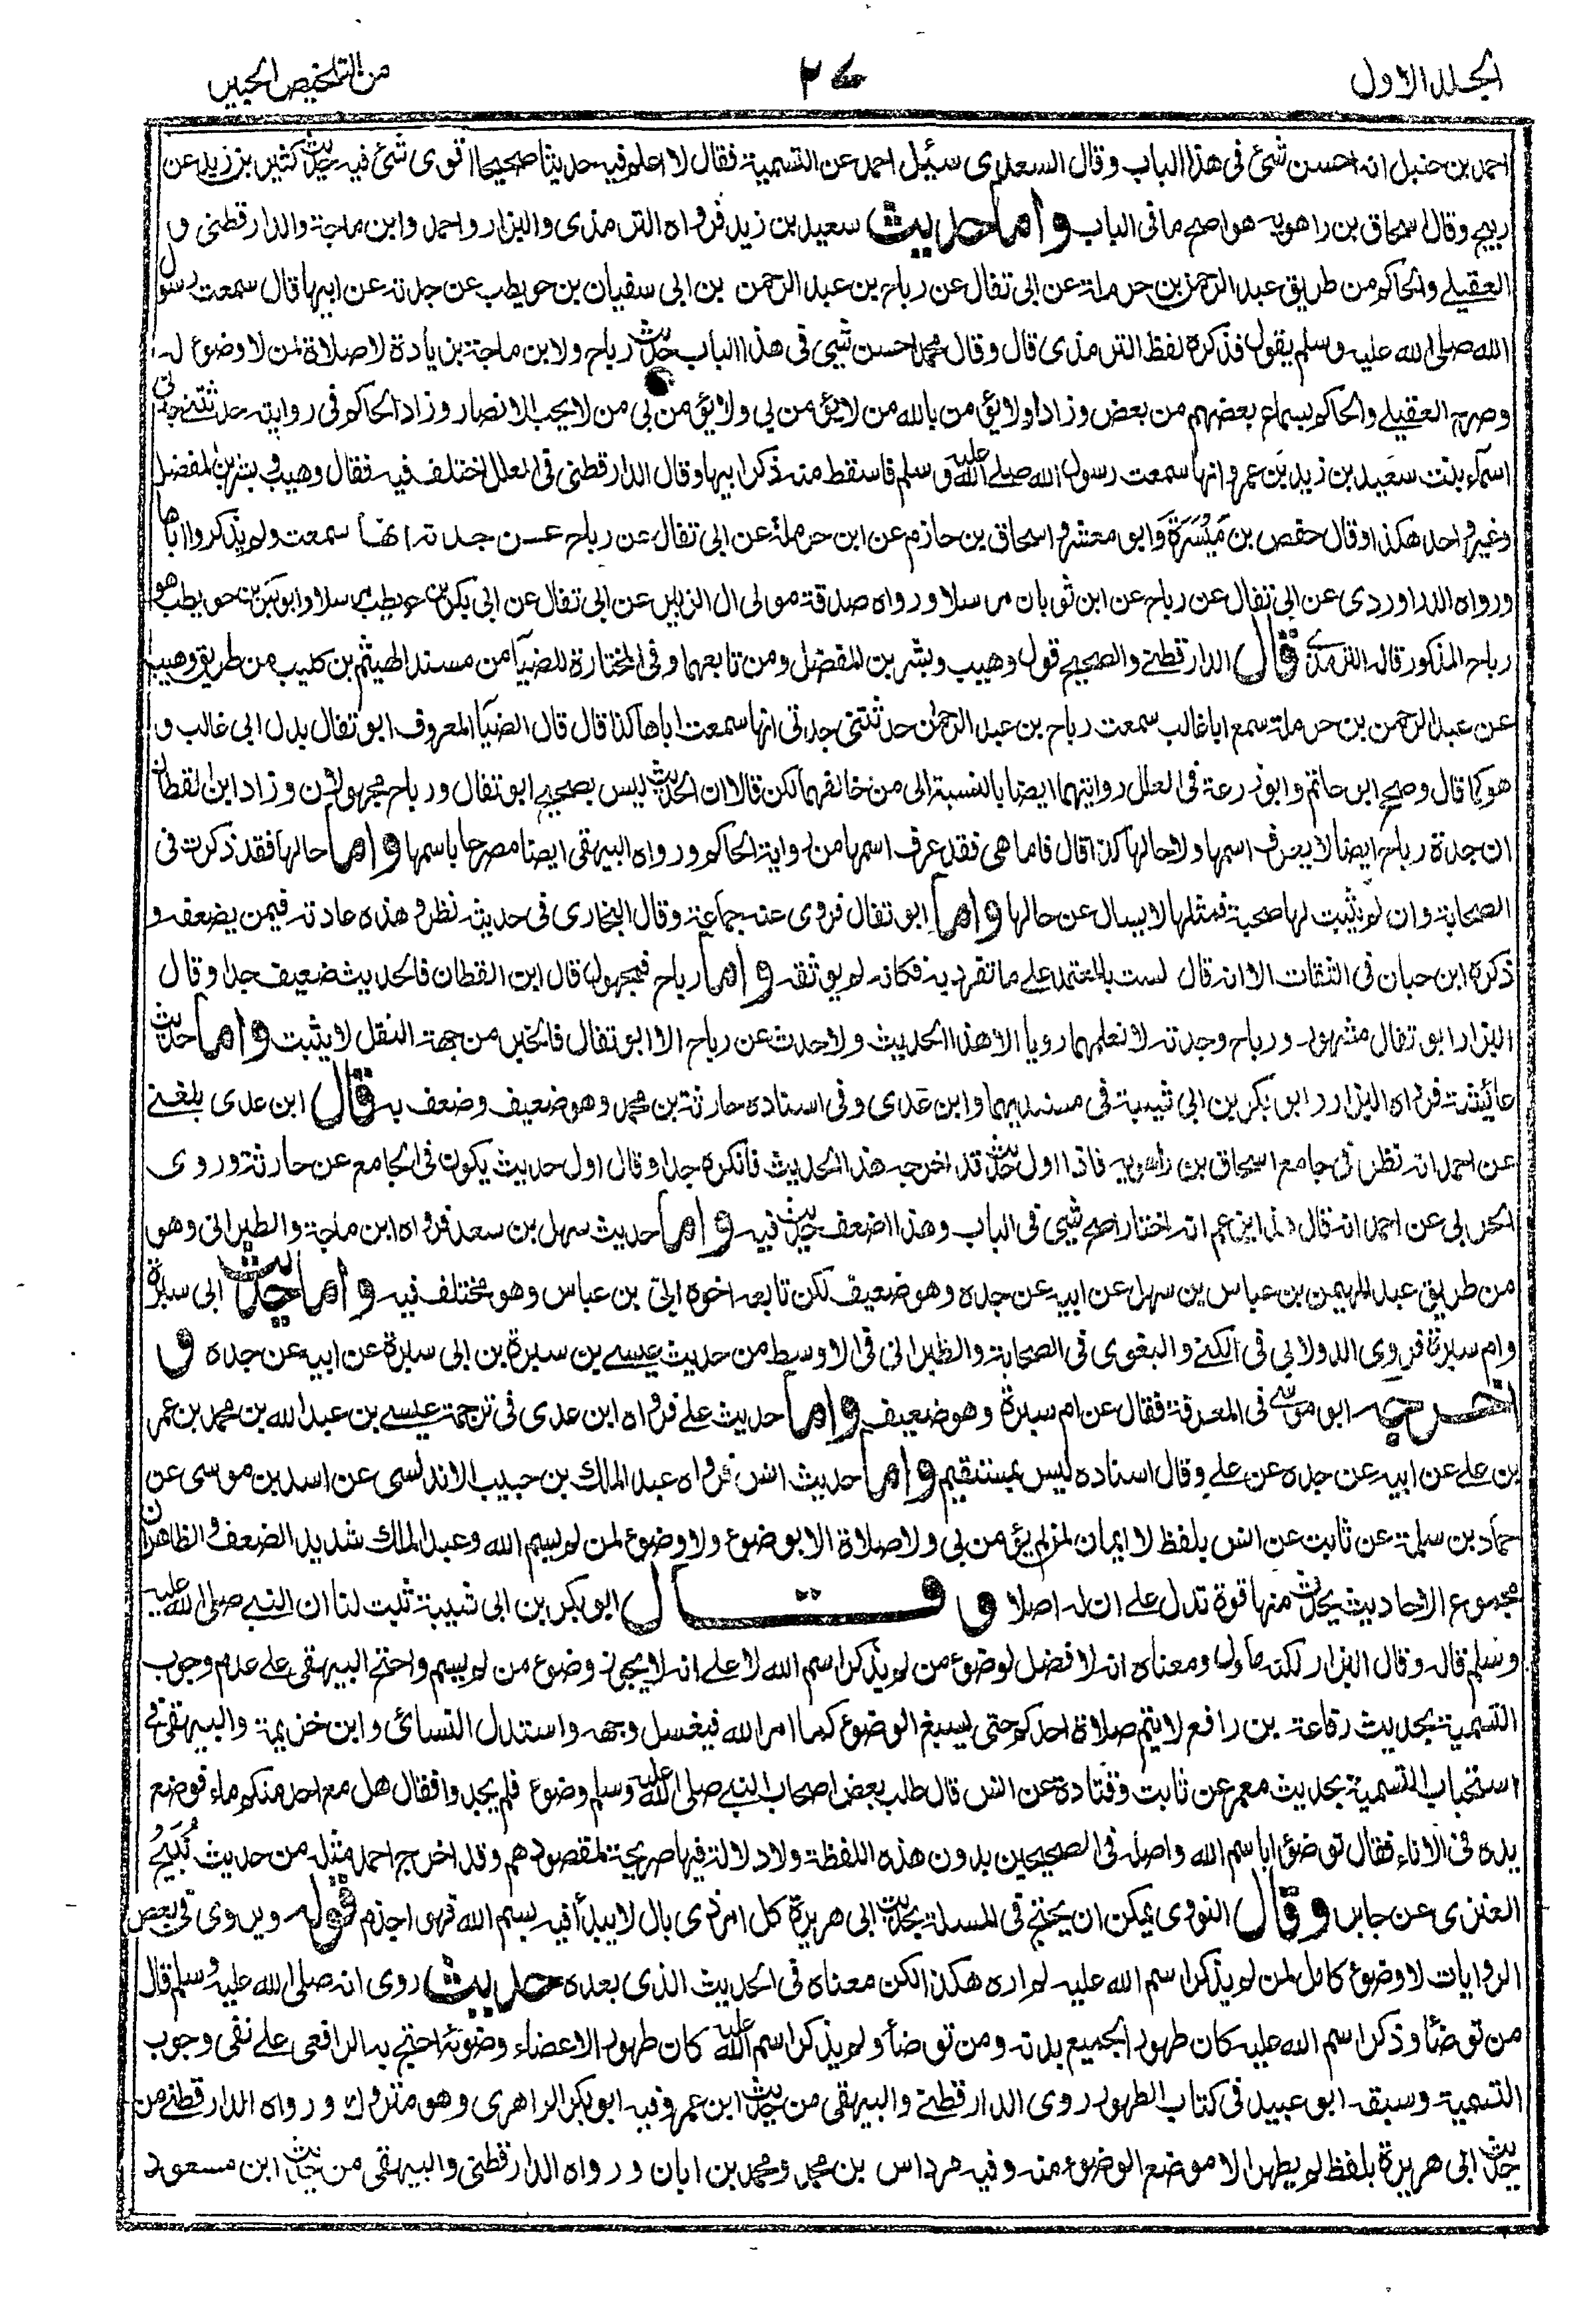 الجلد الاول
٢٧
من التلخيص الحبير
احمد بن حنبل انه احسن شئ فى هذا الباب وقال السعدى سئيل احمد عن التسمية فقال لا اعلم فيه حديثا صحيحا اقوى شئ فيه حديث كثير بن زيد عن
ربيح وقال اسحاق بن راهويه هو اصح ما فى الباب واما حديث سعيد بن زيد فرواه الترمذى والبزار و احمد وابن ماجة والدارقطنى و
العقيلے والحاكم من طريق عبد الرحمن بن حرملة عن ابى ثفال عن رباح بن عبد الرحمن بن ابى سفيان بن حويطب عن جدته عن ابيها قال سمعت رسول
الله صلى الله عليه وسلم يقول فذكره لفظ الترمذى قال وقال محمد احسن شيئ فى هذا الباب حديث رباح ولابن ماجة بزيادة لا صلاة لمن لا وضوء له
وصرح العقيلے والحاكم بسماع بعضهم من بعض وزادا ولا يؤمن بالله من لا يؤمن بى ولا يؤمن بى من لا يحب الانصار وزاد الحاكم فى روايته حدثتنى جدتى
اسماء بنت سعيد بن زيد بن عمرو انها سمعت رسول الله صلے الله عليه وسلم فاسقط منه ذكر ابيها وقال الدارقطنى فى العلل اختلف فيه فقال وهيب و بشر بن المفضل
وغير واحد هكذا وقال حفص بن مَيْسَرَة وابو معشر و اسحاق بن حازم عن ابن حرملة عن ابى ثفال عن رباح عن جدته انها سمعت ولم يذكروا اباها
ورواه الدراوردى عن ابى ثفال عن رباح عن ابن ثوبان مرسلا ورواه صدقة مولى ال الزبير عن ابى ثفال عن ابى بكر بن حويطب مرسلا وابو بكر بن حويطب هو
رباح المذكور قاله الترمذے قال الدارقطنے والصحيح قول وهيب وبشر بن المفضل ومن تابعهما وفى المختارة للضياء من مسند الهيثم بن كليب من طريق وهيب
عن عبد الرحمن بن حرملة سمع ابا غالب سمعت رباح بن عبد الرحمن حدثتنى جدتى انها سمعت اباها كذا قال قال الضياء المعروف ابو ثفال بدل ابى غالب و
هو كما قال وصحح ابن حاتم وابو زرعة فى العلل روايتهما ايضا بالنسبة الى من خالفهما لكن قالا ان الحديث ليس بصحيح ابو ثفال ورباح مجهولان وزاد ابن القطان
ان جدة رباح ايضا لا يعرف اسمها ولا حالها كذا قال فاما هى فقد عرف اسمها من رواية الحاكم ورواه البيهقى ايضا مصرحا باسمها واما حالها فقد ذكرت فى
الصحابة وان لم يثبت لها صحبة فمثلها لا يسال عن حالها واما ابو ثفال فروى عنه جماعة وقال البخارى فى حديثه نظر وهذه عادته فيمن يضعفه و
ذكره ابن حبان فى الثقات الا انه قال لست بالمعتمد على ما تفرد به فكانه لم يوثقه واما رباح فمجهول قال ابن القطان فالحديث ضعيف جدا وقال
البزار ابو ثفال مشهور ورباح وجدته لا نعلمهما رويا الا هذا الحديث ولا حدث عن رباح الا ابو ثفال فالخبر من جهة النقل لا يثبت واما حديث
عائيشة فرواه البزار و ابو بكر بن ابى شيبة فى مسنديهما وابن عدى وفى اسناده حارثة بن محمد وهو ضعيف وضعف به قال ابن عدى بلغنے
عن احمد انه نظر فى جامع اسحاق بن راهويه فاذا اول حديث قد اخرجه هذا الحديث فانكره جدا وقال اول حديث يكون فى الجامع عن حارثة وروى
الحربى عن احمد انه قال هذا يزعم انه اختار اصح شيئ فى الباب وهذا اضعف حديث فيه واما حديث سهل بن سعد فرواه ابن ماجة والطبرانى وهو
من طريق عبد المهيمن بن عباس بن سهل عن ابيه عن جده وهو ضعيف لكن تابعه اخوه ابىّ بن عباس وهو مختلف فيه واما حديث ابى سبرة
وام سبرة فروى الدولابى فى الكنے والبغوى فى الصحابة والطبرانى فى الاوسط من حديث عيسے بن سبرة بن ابى سبرة عن ابيه عن جده و
اخرجه ابو موسى فى المعرفة فقال عن ام سبرة وهو ضعيف واما حديث علے فرواه ابن عدى فى ترجمة عيسے بن عبد الله بن محمد بن عمر
بن علے عن ابيه عن جده عن علے وقال اسناده ليس بمستقيم واما حديث انس فرواه عبد الملك بن حبيب الاندلسى عن اسد بن موسى عن
حماد بن سلمة عن ثابت عن انس بلفظ لا ايمان لمن لم يؤمن بى ولا صلاة الا بوضوء ولا وضوء لمن لم يسم الله وعبد الملك شديد الضعف والظاهر ان
مجموع الاحاديث يحدث منها قوة تدل علے ان له اصلا وقال ابو بكر بن ابى شيبة ثبت لنا ان النبے صلى الله عليه
وسلم قاله وقال البزار لكنه ماول ومعناه انه لا فضل لوضوء من لم يذكر اسم الله لا علے انه لا يجوز وضوء من لم يسم واحتج البيهقى علے عدم وجوب
التسمية بحديث رفاعة بن رافع لا يتم صلاة احدكم حتى يسبغ الوضوء كما امر الله فيغسل وجهه واستدل النسائى وابن خزيمة والبيهقى فے
استحباب التسمية بحديث معمر عن ثابت وقتادة عن انس قال طلب بعض اصحاب النبے صلى الله عليه وسلم وضوء فلم يجدوا فقال هل مع احد منكم ماء فوضع
يده فى الاناء فقال توضؤا باسم الله واصله فى الصحيحين بدون هذه اللفظة ولا دلالة فيها صريحة لمقصودهم وقد اخرجه احمد مثله من حديث نُبَيْحُ
العنزى عن جابر وقال النووى يمكن ان يحتج فى المسئلة بحديث ابى هريرة كل امر ذى بال لا يبدأ فيه ببسم الله فهو اجذم قوله ويروى فى بعض
الروايات لا وضوء كامل لمن لم يذكر اسم الله عليه لم اره هكذا لكن معناه فى الحديث الذى بعده حديث روى انه صلى الله عليه وسلم قال
من توضأ وذكر اسم الله عليه كان طهورا لجميع بدنه ومن توضأ ولم يذكر اسم الله عليه كان طهورا لاعضاء وضوئه احتج به الرافعى علے نفى وجوب
التسمية وسبقه ابو عبيد فى كتاب الطهور روى الدارقطنے والبيهقى من حديث ابن عمر وفيه ابو بكر الداهرى وهو متروك ورواه الدارقطنے من
حديث ابى هريرة بلفظ لم يطهر الا موضع الوضوء منه وفيه مرداس بن محمد ومحمد بن ابان ورواه الدارقطنى والبيهقى من حديث ابن مسعود